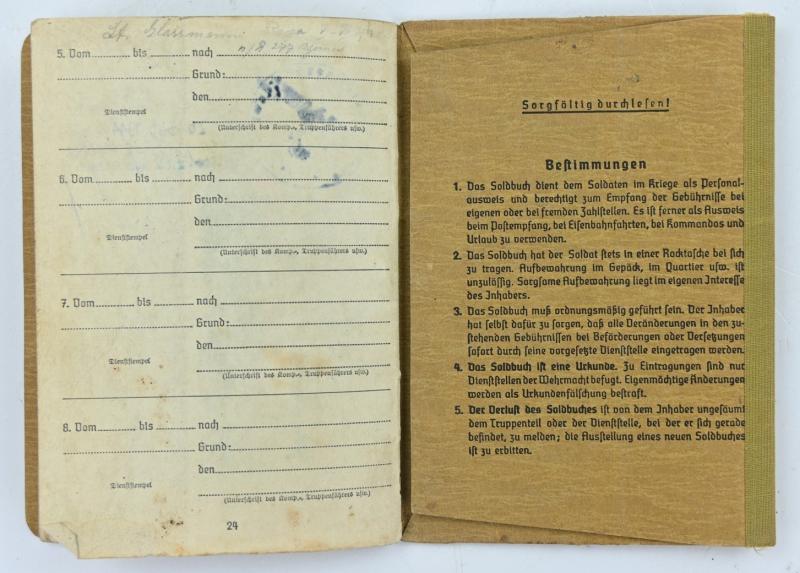 Lt. Glassmann
5. Vom bis nach
Grund:
den
Dienststempel
(Unterschrift des Komp., Truppenführers usw.)
6. Vom bis nach
Grund:
den
Dienststempel
(Unterschrift des Komp., Truppenführers usw.)
7. Vom bis nach
Grund:
den
Dienststempel
(Unterschrift des Komp., Truppenführers usw.)
8. Vom bis nach
Grund:
den
Dienststempel
(Unterschrift des Komp., Truppenführers usw.)
24
Sorgfältig durchlesen!
Bestimmungen
1. Das Soldbuch dient dem Soldaten im Kriege als Personal-
ausweis und berechtigt zum Empfang der Gebührnisse bei
eigenen oder bei fremden Zahlstellen. Es ist ferner als Ausweis
beim Postempfang, bei Eisenbahnfahrten, bei Kommandos und
Urlaub zu verwenden.
2. Das Soldbuch hat der Soldat stets in einer Rocktasche bei sich
zu tragen. Aufbewahrung im Gepäck, im Quartier usw. ist
unzulässig. Sorgsame Aufbewahrung liegt im eigenen Interesse
des Inhabers.
3. Das Soldbuch muß ordnungsmäßig geführt sein. Der Inhaber
hat selbst dafür zu sorgen, daß alle Veränderungen in den zu-
stehenden Gebührnissen bei Beförderungen oder Versetzungen
sofort durch seine vorgesetzte Dienststelle eingetragen werden.
4. Das Soldbuch ist eine Urkunde. Zu Eintragungen sind nur
Dienststellen der Wehrmacht befugt. Eigenmächtige Änderungen
werden als Urkundenfälschung bestraft.
5. Der Verlust des Soldbuches ist von dem Inhaber ungesäumt
dem Truppenteil oder der Dienststelle, bei der er sich gerade
befindet, zu melden; die Ausstellung eines neuen Soldbuches
ist zu erbitten.